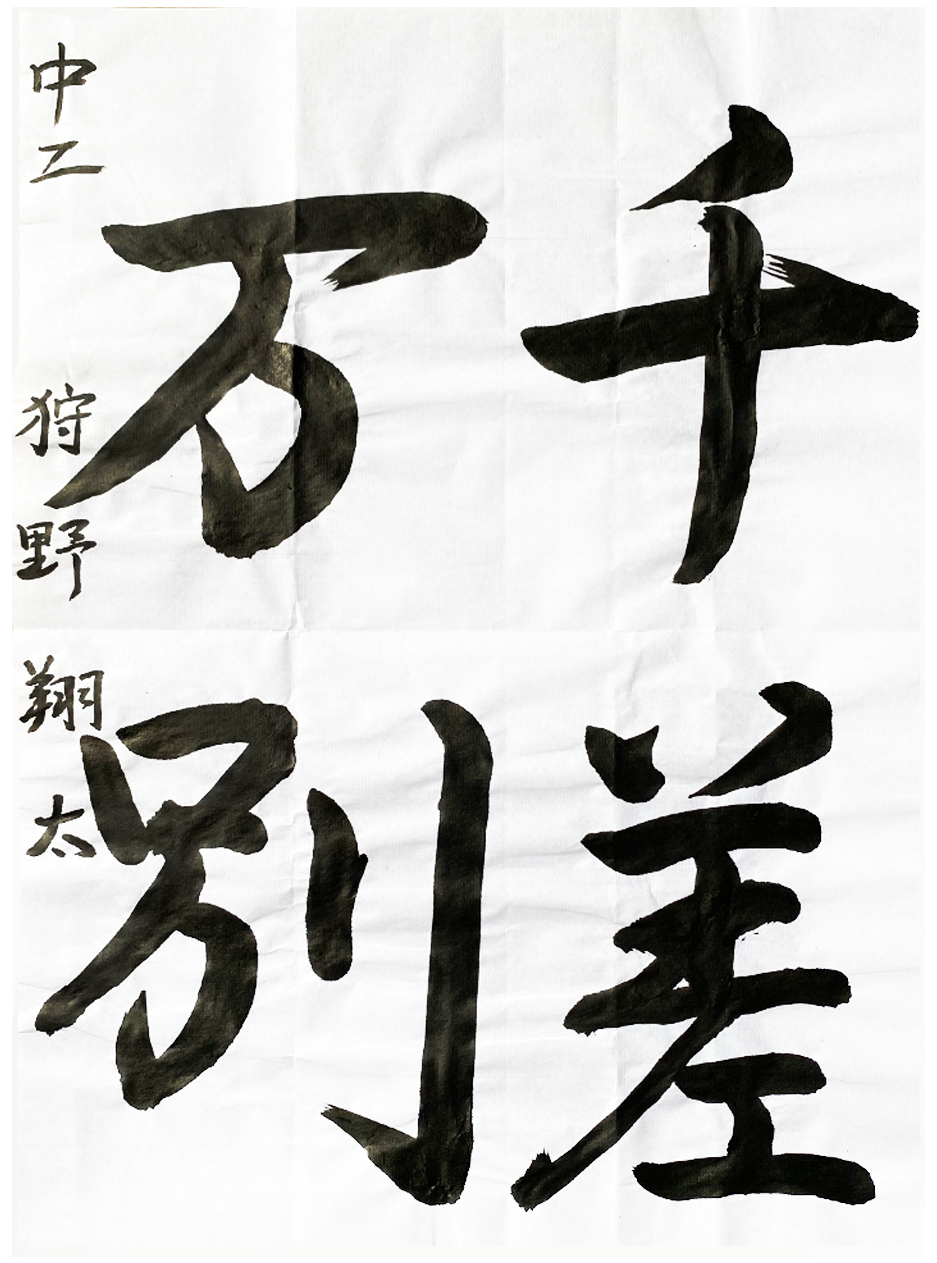 千差
万別
中二 狩野翔太